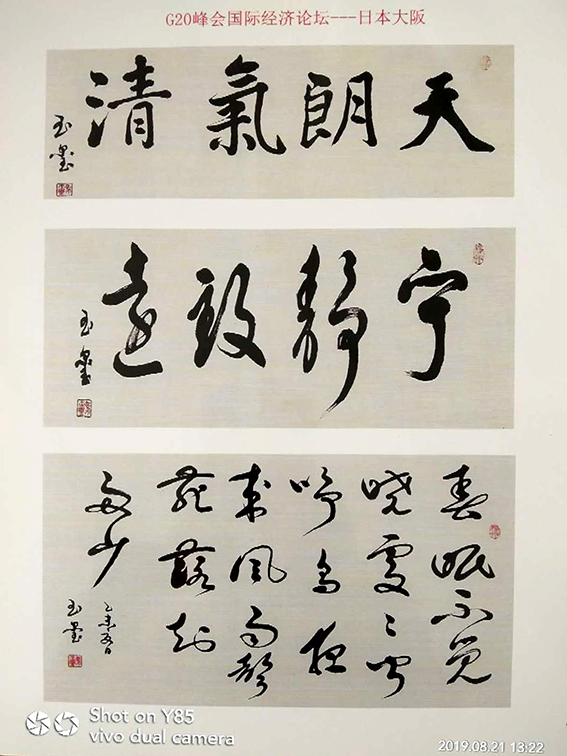 G20峰会国际经济论坛---日本大阪
天朗氣清
玉墨
宁靜致遠
玉墨
春眠不觉
晓處〻闻
啼鸟夜
来風雨聲
花落知
多少
乙未
玉墨
Shot on Y85
vivo dual camera
2019.08.21 13:22